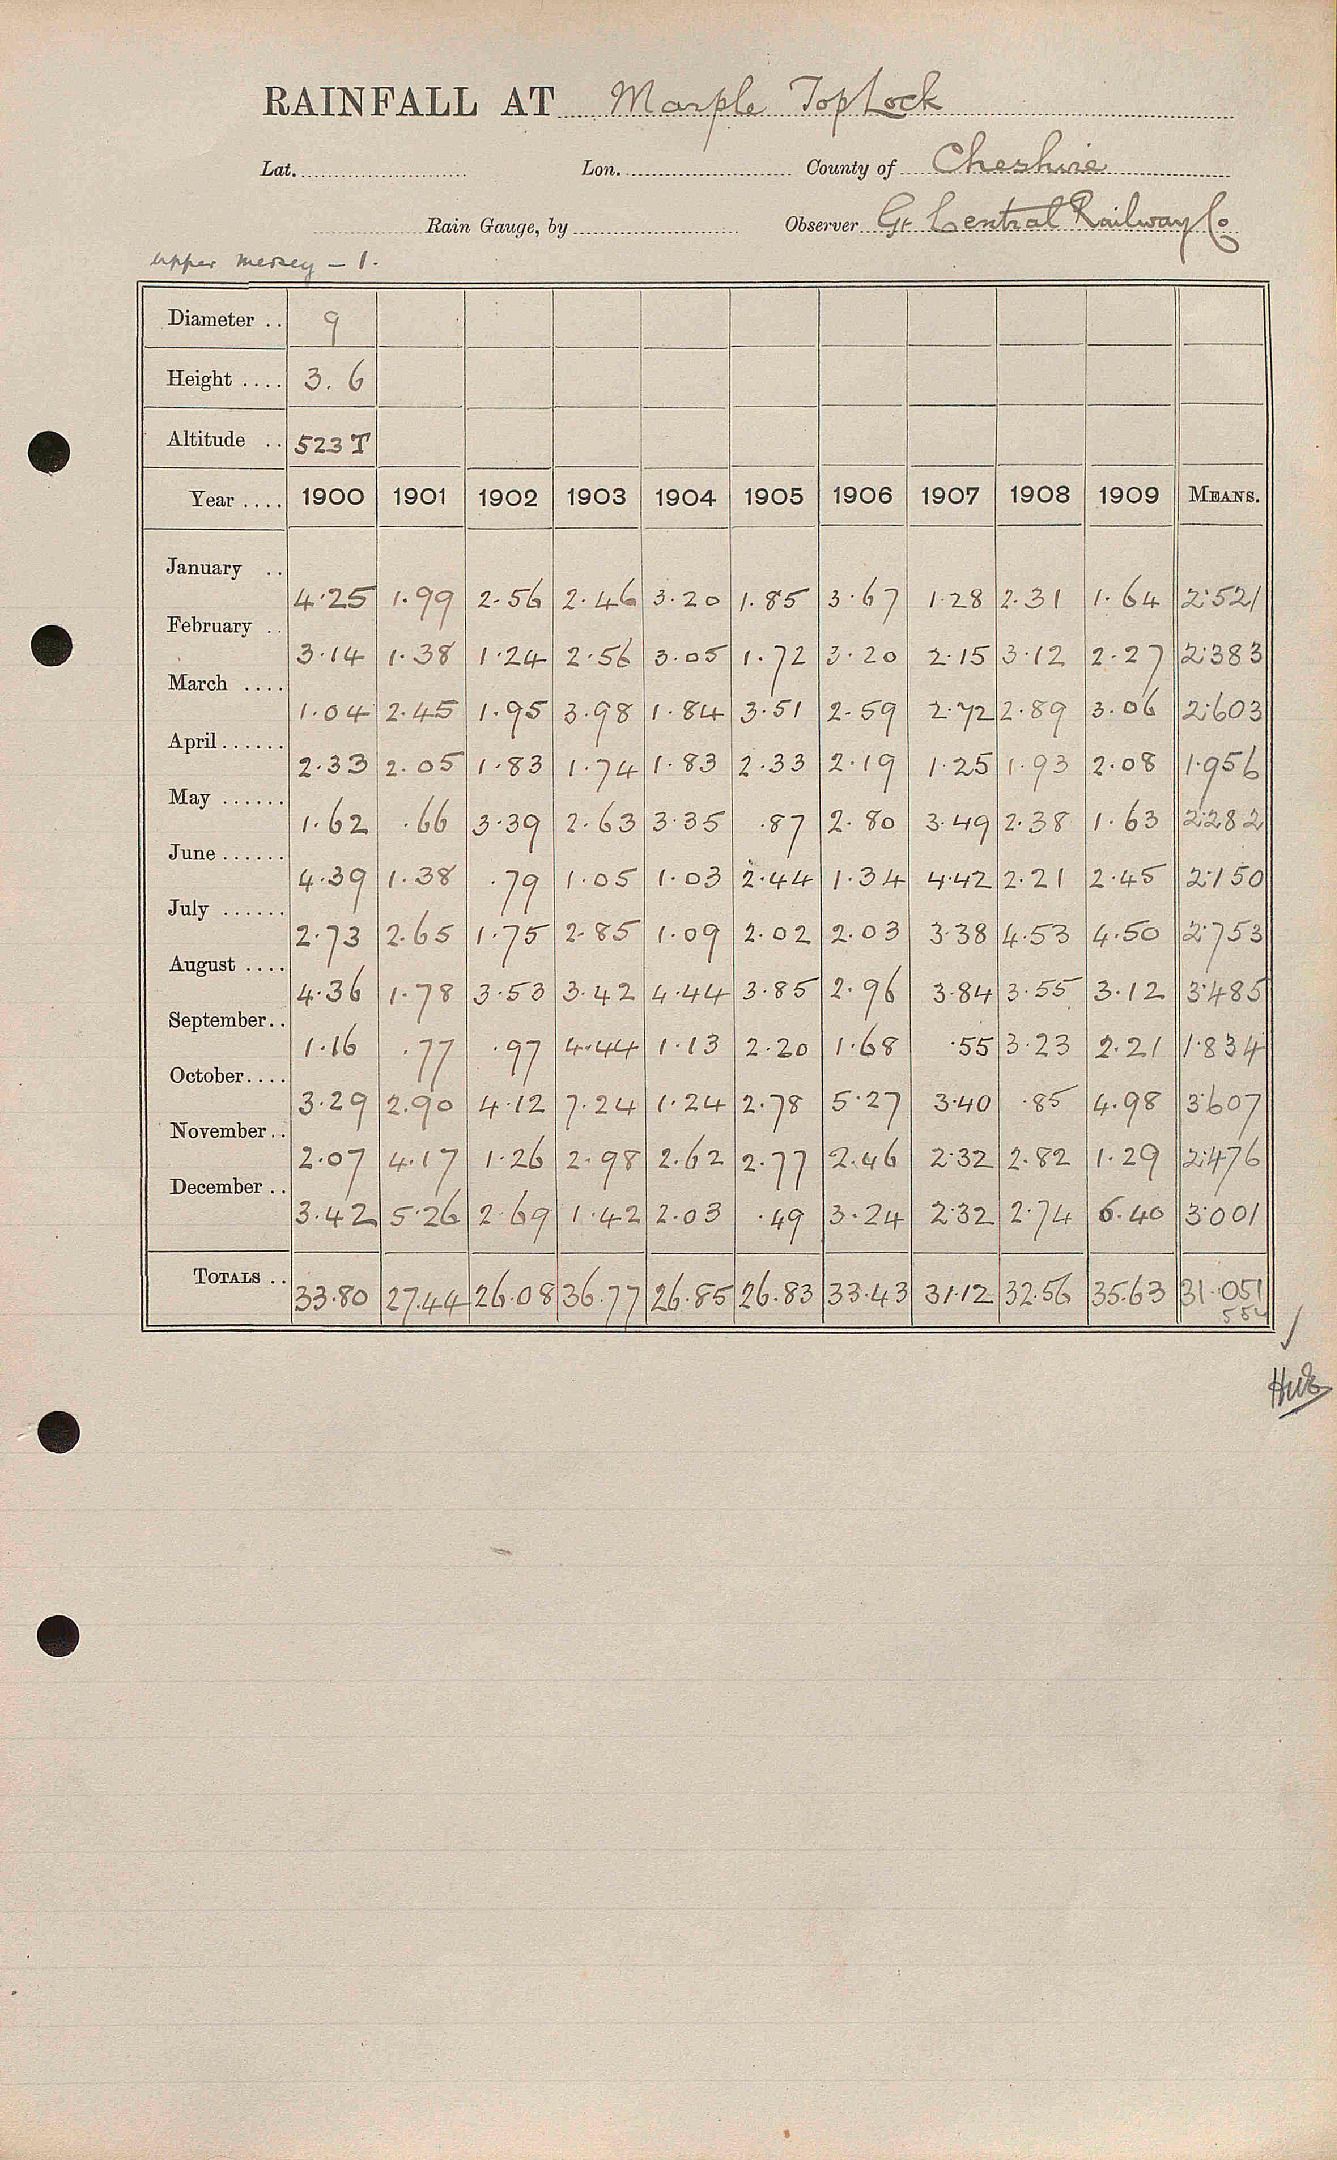 RAINFALL AT Marple Top Lock
Lat. Lon. County of Cheshire
Rain Gauge, by Observer Gt. Central Railway Co
upper mersey - 1.
Diameter .. 9
Height .... 3. 6
Altitude .. 523 T
Year .... 1900 1901 1902 1903 1904 1905 1906 1907 1908 1909 MEANS.
January .. 4.25 1.99 2.56 2.46 3.20 1.85 3.67 1.28 2.31 1.64 2.521
February .. 3.14 1.38 1.24 2.56 3.05 1.72 3.20 2.15 3.12 2.27 2.383
March .... 1.04 2.45 1.95 3.98 1.84 3.51 2.59 2.72 2.89 3.06 2.603
April...... 2.33 2.05 1.83 1.74 1.83 2.33 2.19 1.25 1.93 2.08 1.956
May ...... 1.62 .66 3.39 2.63 3.35 .87 2.80 3.49 2.38 1.63 2.282
June ...... 4.39 1.38 .79 1.05 1.03 2.44 1.34 4.42 2.21 2.45 2.150
July ...... 2.73 2.65 1.75 2.85 1.09 2.02 2.03 3.38 4.53 4.50 2.753
August .... 4.36 1.78 3.53 3.42 4.44 3.85 2.96 3.84 3.55 3.12 3.485
September.. 1.16 .77 .97 4.44 1.13 2.20 1.68 .55 3.23 2.21 1.834
October.... 3.29 2.90 4.12 7.24 1.24 2.78 5.27 3.40 .85 4.98 3.607
November .. 2.07 4.17 1.26 2.98 2.62 2.77 2.46 2.32 2.82 1.29 2.476
December .. 3.42 5.26 2.69 1.42 2.03 .49 3.24 2.32 2.74 6.40 3.001
TOTALS .. 33.80 27.44 26.08 36.77 26.85 26.83 33.43 31.12 32.56 35.63 31.051